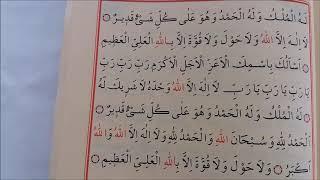 لَهُ الْمُلْكُ وَلَهُ الْحَمْدُ وَهُوَ عَلٰى كُلِّ شَىْءٍ قَدِيرٌ ۞
لَا اِلٰهَ اِلَّا اللّٰهُ وَلَا حَوْلَ وَلَا قُوَّةَ اِلَّا بِاللّٰهِ الْعَلِىِّ الْعَظِيمِ
اَسْاَلُكَ بِاسْمِكَ الْاَعَزِّ الْاَجَلِّ الْاَكْرَمِ رَبِّ رَبِّ رَبِّ
يَا رَبِّ يَا رَبِّ يَا رَبِّ لَا اِلٰهَ اِلَّا اللّٰهُ وَحْدَهُ لَا شَرِيكَ لَهُ
لَهُ الْمُلْكُ وَلَهُ الْحَمْدُ وَهُوَ عَلٰى كُلِّ شَىْءٍ قَدِيرٌ ۞
اَلْحَمْدُ لِلّٰهِ وَسُبْحَانَ اللّٰهِ وَالْحَمْدُ لِلّٰهِ وَلَا اِلٰهَ اِلَّا اللّٰهُ وَاللّٰهُ
اَكْبَرُ ۞ وَلَا حَوْلَ وَلَا قُوَّةَ اِلَّا بِاللّٰهِ الْعَلِىِّ الْعَظِيمِ ۞